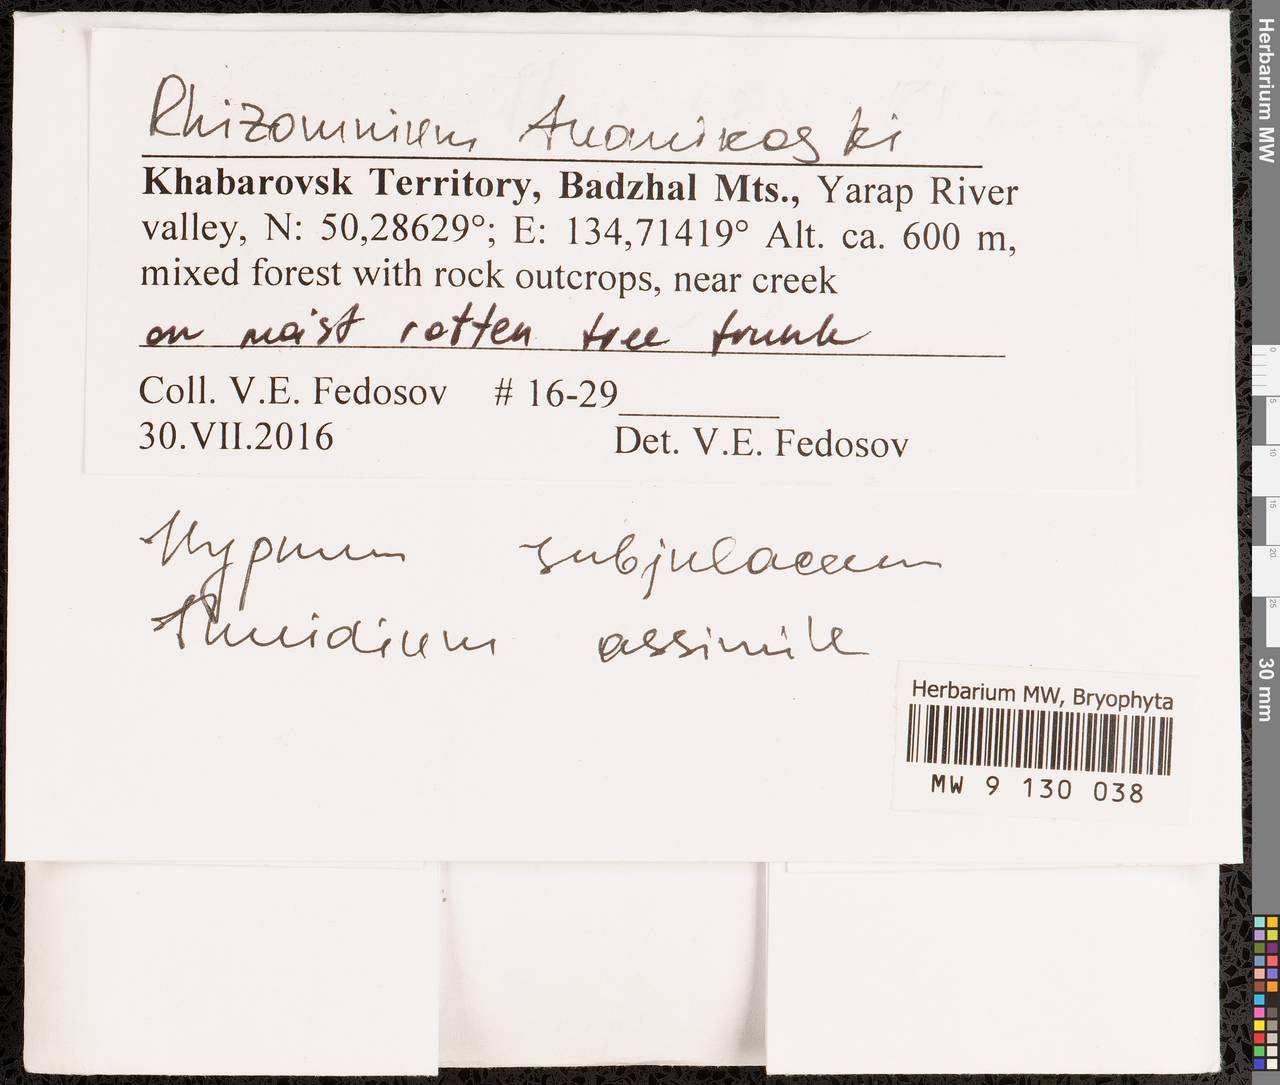 Rhizomnium tuomikoskii
Khabarovsk Territory, Badzhal Mts., Yarap River
valley, N: 50,28629°; E: 134,71419° Alt. ca. 600 m,
mixed forest with rock outcrops, near creek
on moist rotten tree trunk
Coll. V.E. Fedosov # 16-29
30.VII.2016 Det. V.E. Fedosov
Hypnum subjulaceum
Thuidium assimile
Herbarium MW, Bryophyta
MW 9 130 038
Herbarium MW
0
5
10
15
20
25
30 mm